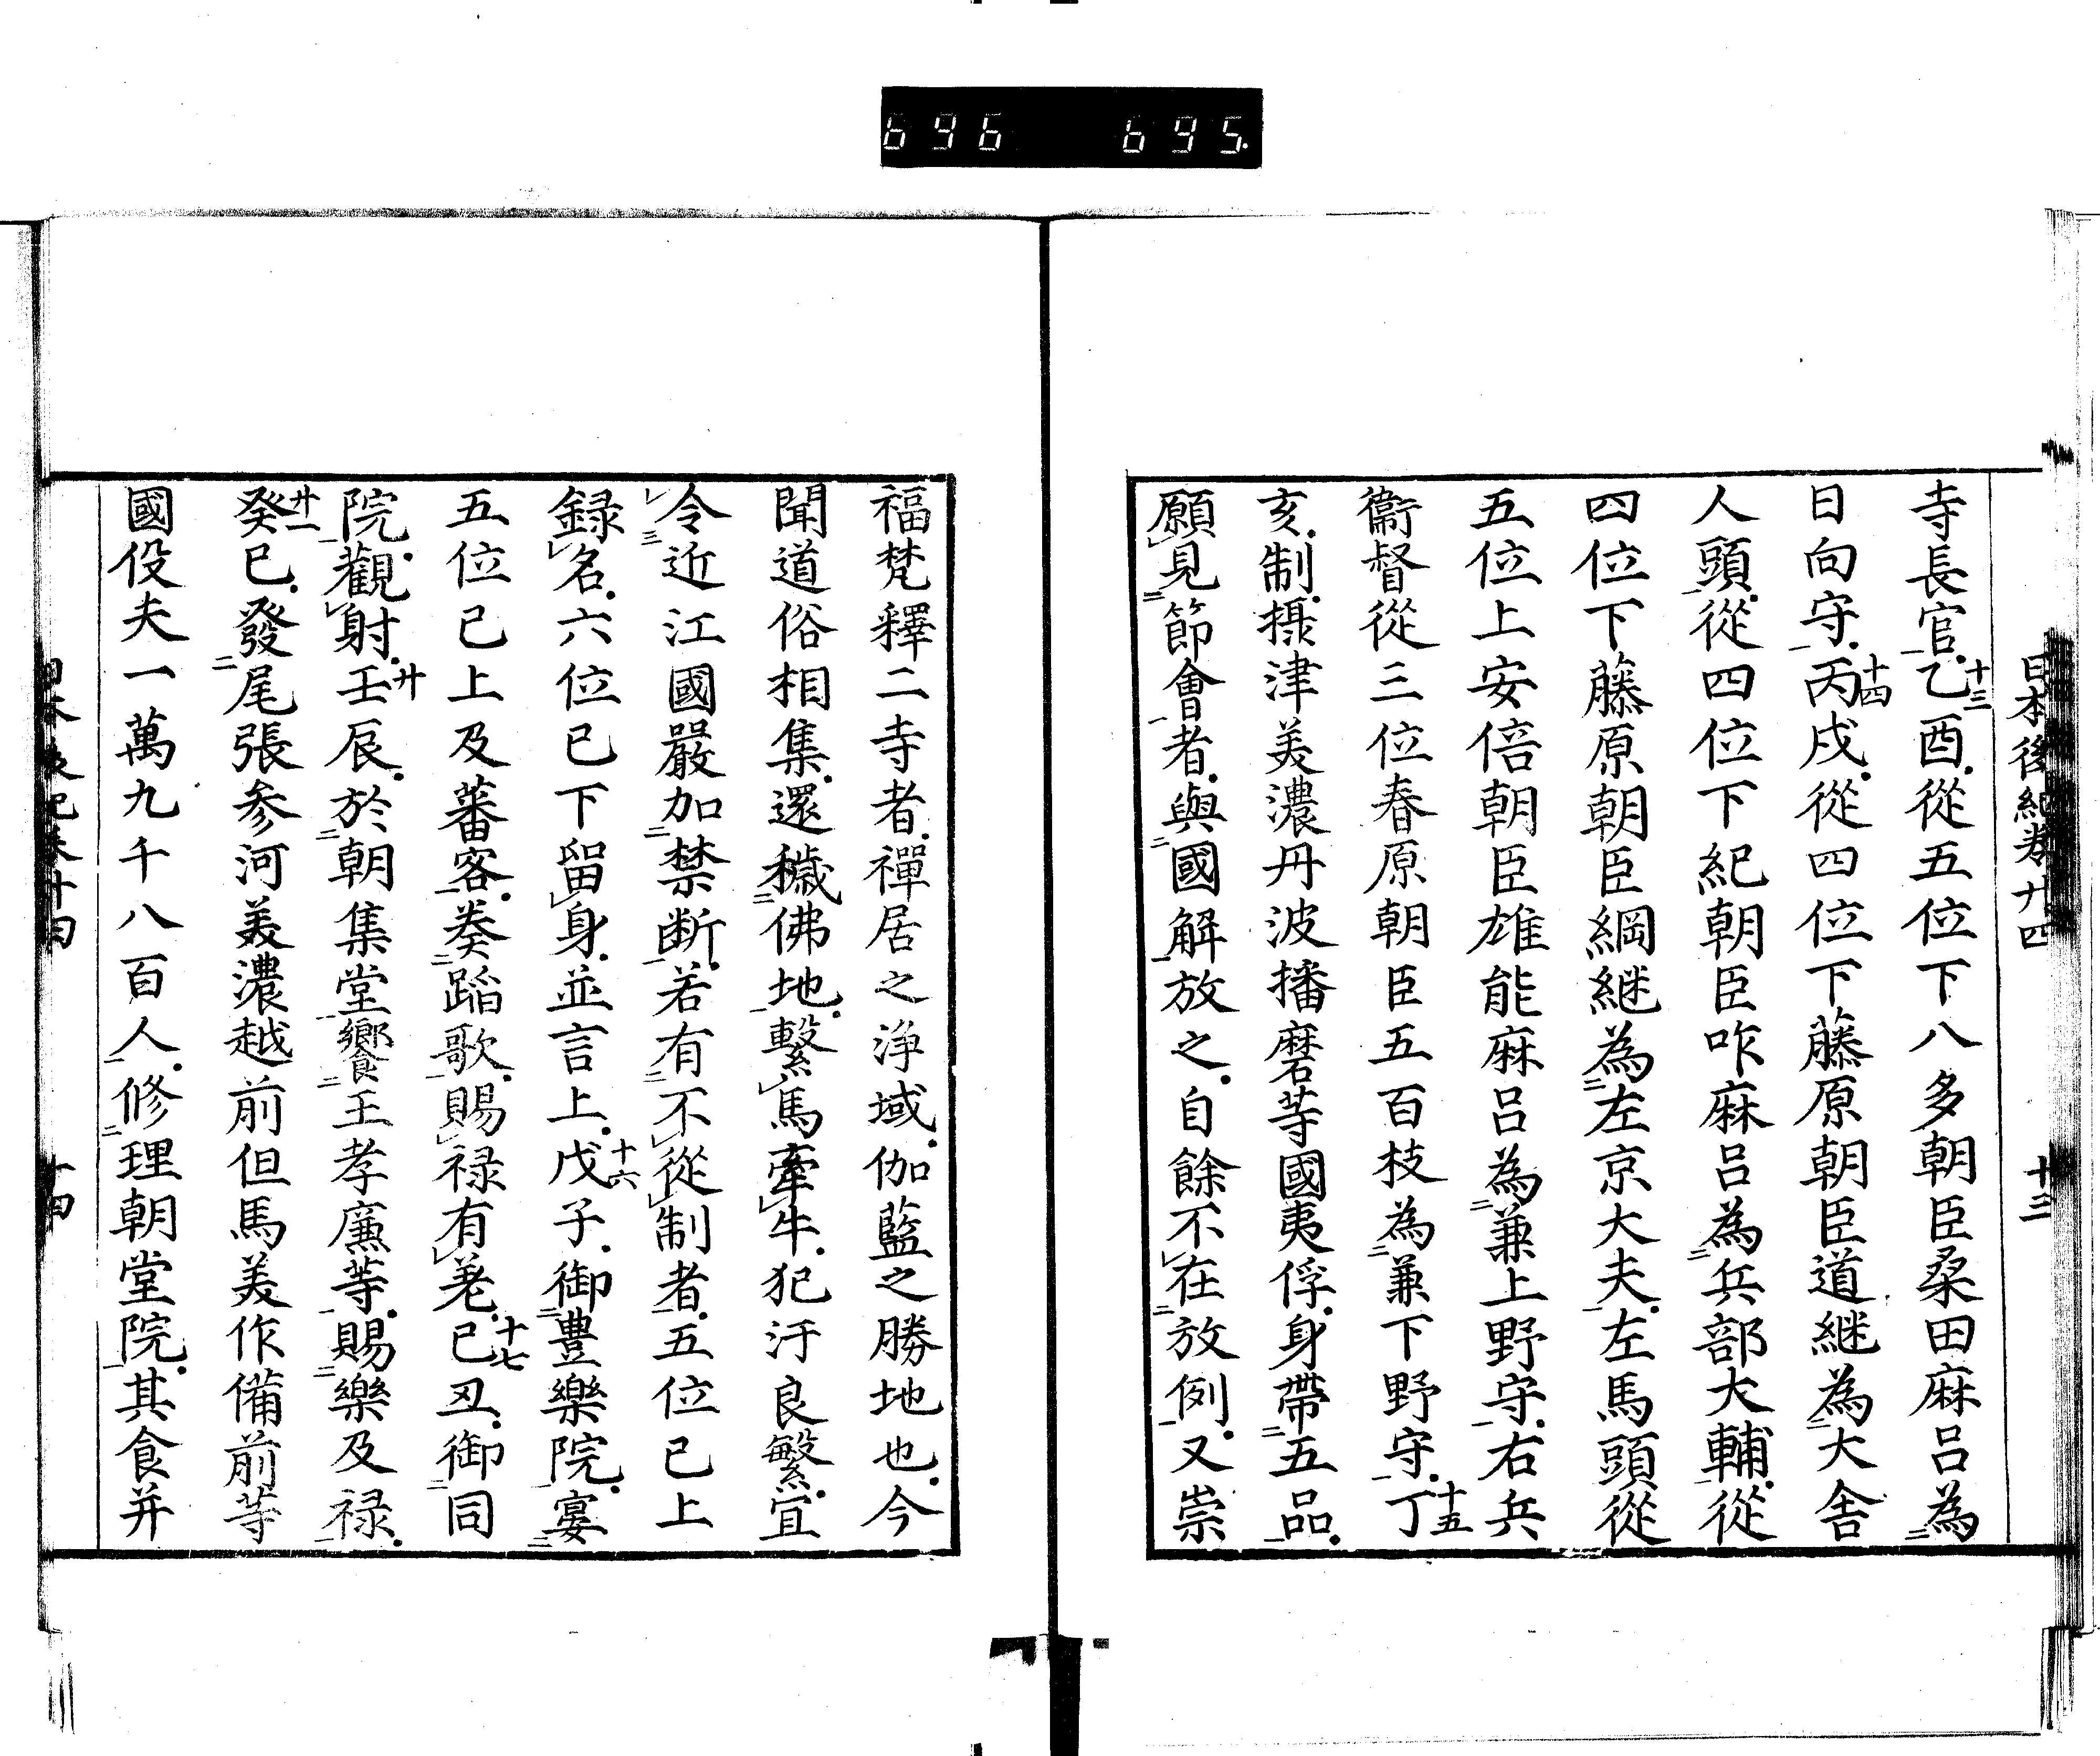 696 695
日本後紀卷廿四 十三
寺長官乙十三酉從五位下八多朝臣桑田麻呂為
日向守丙十四戌從四位下藤原朝臣道継為大舎
人頭從四位下紀朝臣咋麻呂為兵部大輔從
四位下藤原朝臣綱継為左京大夫左馬頭從
五位上安倍朝臣雄能麻呂為兼上野守右兵
衞督從三位春原朝臣五百枝為兼下野守丁十五
亥制攝津美濃丹波播磨等國夷俘身帶五品
願見節會者與國解放之自餘不在放例又崇
福梵釋二寺者禪居之浄域伽藍之勝地也今
聞道俗相集還穢佛地繫馬牽牛犯汙良繁宜
令近江國嚴加禁断若有不從制者五位已上
録名六位已下留身並言上戊十六子御豊樂院宴
五位已上及蕃客奏蹈歌賜禄有差己十七丑御同
院觀射壬廿辰於朝集堂饗王孝廉等賜樂及禄
癸廿一巳發尾張参河美濃越前但馬美作備前等
國役夫一萬九千八百人修理朝堂院其食并